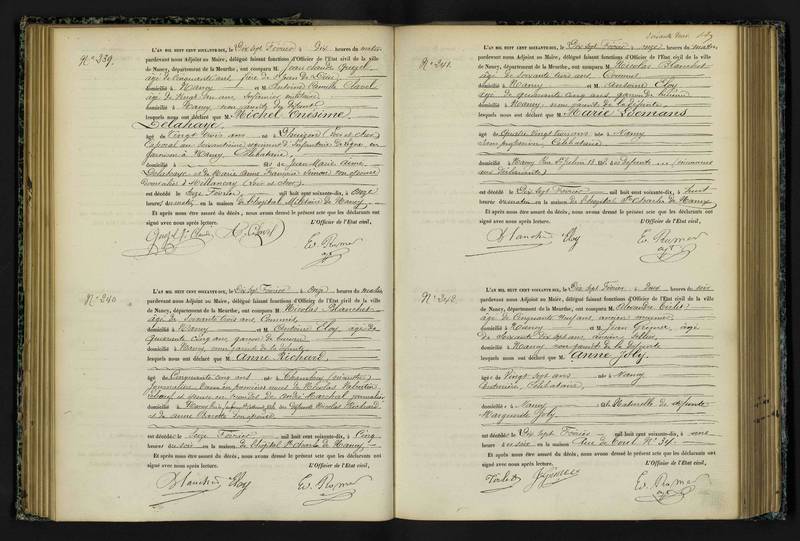 N° 239.
L'AN MIL HUIT CENT SOIXANTE-DIX, le Dix Sept Février à Dix heures du matin,
pardevant nous Adjoint au Maire, délégué faisant fonctions d'Officier de l'Etat civil de la ville
de Nancy, département de la Meurthe, ont comparu M. Jean Claude
âgé de Cinquante ans
domicilié à Nancy et M. Antoine Camille Clavel
âgé de Vingt deux ans Infirmier militaire
domicilié à Nancy, non parents du défunt
lesquels nous ont déclaré que M. Michel Onésime
Delahaye,
âgé de Vingt trois ans né à (Loir et cher)
Caporal au soixantième régiment d'Infanterie de ligne en
garnison à Nancy, Célibataire,
domicilié à fils de Jean Marie Aimé
Delahaye et de Marie Anne Françoise Simon son épouse
domiciliés à Millançay (Loir et cher)
est décédé le Seize Février mil huit cent soixante-dix, à Onze
heures du matin en la maison de l'hôpital Militaire de Nancy
Et après nous être assuré du décès, nous avons dressé le présent acte que les déclarants ont
signé avec nous après lecture. L'Officier de l'Etat civil,
N° 240
L'AN MIL HUIT CENT SOIXANTE-DIX, le Dix Sept Février à Onze heures du matin,
pardevant nous Adjoint au Maire, délégué faisant fonctions d'Officier de l'Etat civil de la ville
de Nancy, département de la Meurthe, ont comparu M. Nicolas Blanchet
âgé de soixante trois ans Commis
domicilié à Nancy et M. Antoine Eloy, âgé de
Quarante cinq ans garçon de bureau
domicilié à Nancy, non parents de la défunte
lesquels nous ont déclaré que M. Anne Richard
âgé de Cinquante cinq ans née à Chambrey (Meurthe)
Journalière, Veuve en premières noces de Nicolas
et veuve en secondes de André Marchal journalier
domicilié à Nancy fille des défunts Nicolas Richard
et de Anne
est décédé le Seize Février mil huit cent soixante-dix, à Cinq
heures du soir en la maison de l'hôpital St Charles de Nancy
Et après nous être assuré du décès, nous avons dressé le présent acte que les déclarants ont
signé avec nous après lecture. L'Officier de l'Etat civil,
Blanchet Eloy
N° 241.
L'AN MIL HUIT CENT SOIXANTE-DIX, le Dix Sept Février à onze heures du matin,
pardevant nous Adjoint au Maire, délégué faisant fonctions d'Officier de l'Etat civil de la ville
de Nancy, département de la Meurthe, ont comparu M. Nicolas Blanchet
âgé de soixante trois ans Commis
domicilié à Nancy et M. Antoine Eloy
âgé de quarante cinq ans garçon de bureau
domicilié à Nancy, non parents de la défunte
lesquels nous ont déclaré que M. Marie
âgé de Quatre Vingt ans née à Nancy
Sans profession, Célibataire
domicilié à Nancy Rue St Julien fille des défunts (inconnus
aux déclarants)
est décédé le Dix Sept Février mil huit cent soixante-dix, à huit
heures du matin en la maison de l'hôpital St Charles de Nancy
Et après nous être assuré du décès, nous avons dressé le présent acte que les déclarants ont
signé avec nous après lecture. L'Officier de l'Etat civil,
Blanchet Eloy
N° 242.
L'AN MIL HUIT CENT SOIXANTE-DIX, le Dix Sept Février à Deux heures du soir
pardevant nous Adjoint au Maire, délégué faisant fonctions d'Officier de l'Etat civil de la ville
de Nancy, département de la Meurthe, ont comparu M. Alexandre
âgé de Cinquante ans, ancien
domicilié à Nancy et M. Jean âgé
de Soixante dix sept ans, ancien Sellier
domicilié à Nancy non parents de la défunte
lesquels nous ont déclaré que M. Anne Joly.
âgé de Vingt sept ans née à Nancy
Couturière, Célibataire,
domicilié à Nancy fille naturelle de défunte
Marguerite Joly
est décédé le Dix Sept Février mil huit cent soixante-dix, à une
heure du soir en la maison Rue de N° 34.
Et après nous être assuré du décès, nous avons dressé le présent acte que les déclarants ont
signé avec nous après lecture. L'Officier de l'Etat civil,